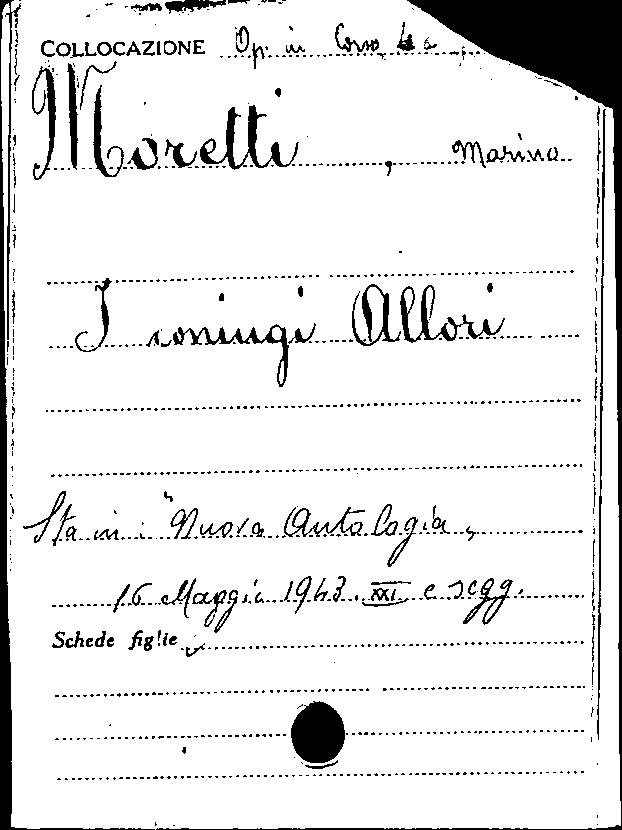 COLLOCAZIONE Op. in Corso
Moretti, Marino
I coniugi Allori
Sta in: "Nuova Antologia,
16 Maggio 1943. XXI e segg.
Schede figlie